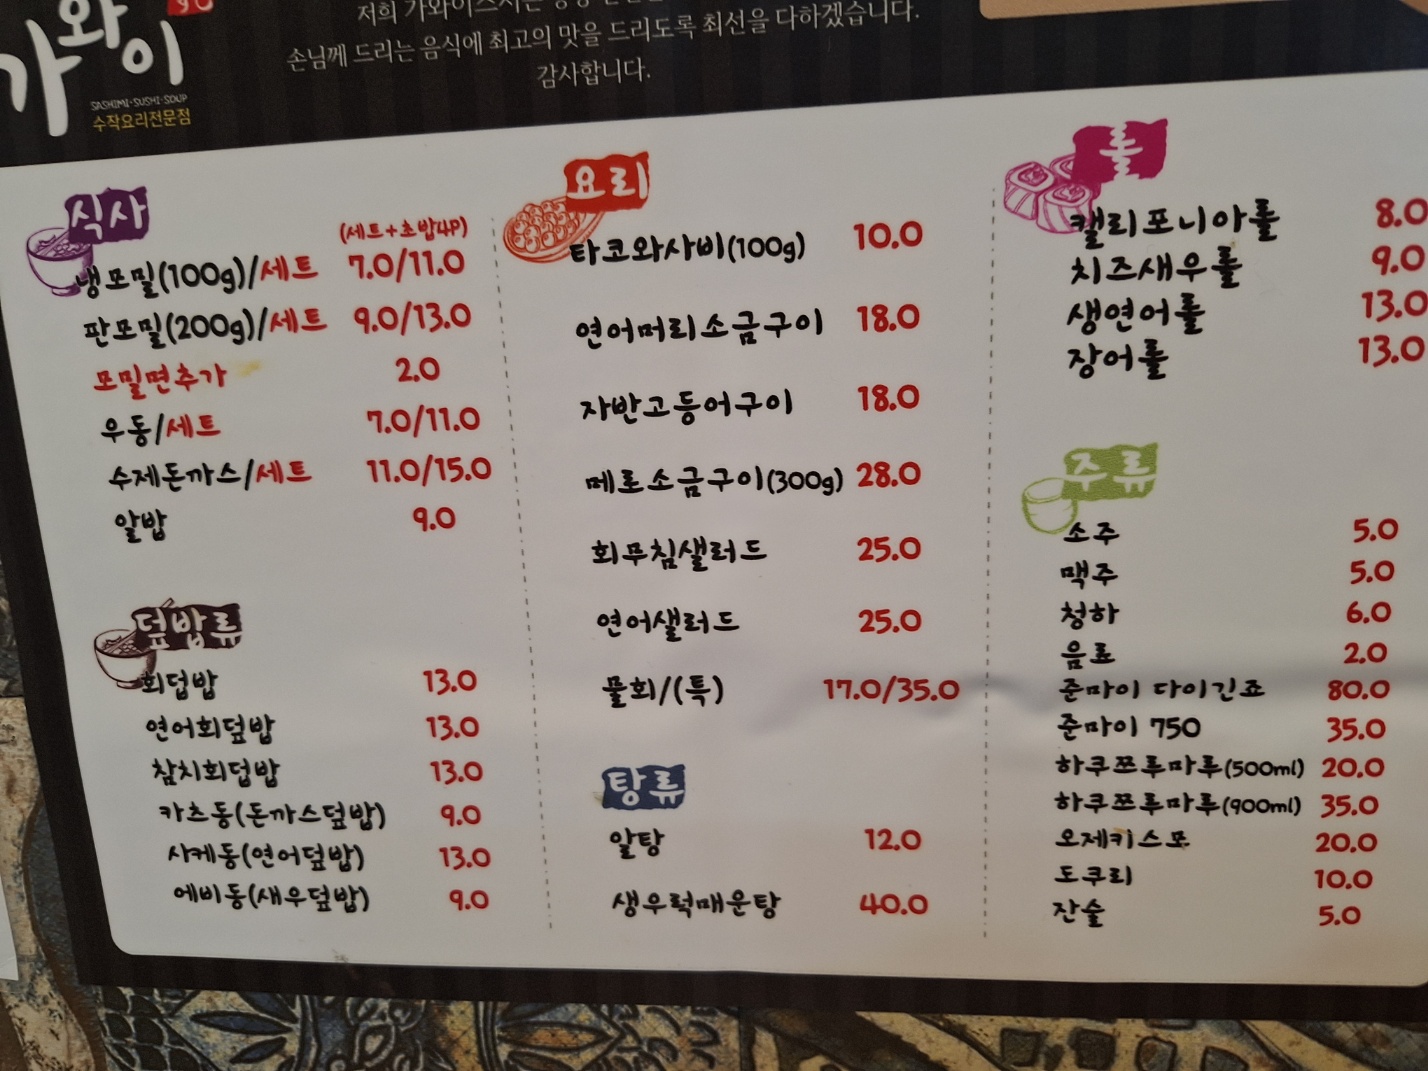 가와이
SASHIMI·SUSHI·SOUP
수작요리전문점
저희
손님께 드리는 음식에 최고의 맛을 드리도록 최선을 다하겠습니다.
감사합니다.
식사
(세트+초밥4P)
냉모밀(100g)/세트 7.0/11.0
판모밀(200g)/세트 9.0/13.0
모밀면추가 2.0
우동/세트 7.0/11.0
수제돈까스/세트 11.0/15.0
알밥 9.0
덮밥류
회덥밥 13.0
연어회덮밥 13.0
참치회덥밥 13.0
카츠동(돈까스덮밥) 9.0
사케동(연어덮밥) 13.0
에비동(새우덮밥) 9.0
요리
타코와사비(100g) 10.0
연어머리소금구이 18.0
자반고등어구이 18.0
메로소금구이(300g) 28.0
회무침샐러드 25.0
연어샐러드 25.0
물회/(특) 17.0/35.0
탕류
알탕 12.0
생우럭매운탕 40.0
롤
캘리포니아롤 8.0
치즈새우롤 9.0
생연어롤 13.0
장어롤 13.0
주류
소주 5.0
맥주 5.0
청하 6.0
음료 2.0
준마이 다이긴죠 80.0
준마이 750 35.0
하쿠쯔루마루(500ml) 20.0
하쿠쯔루마루(900ml) 35.0
오제키스모 20.0
도쿠리 10.0
잔술 5.0